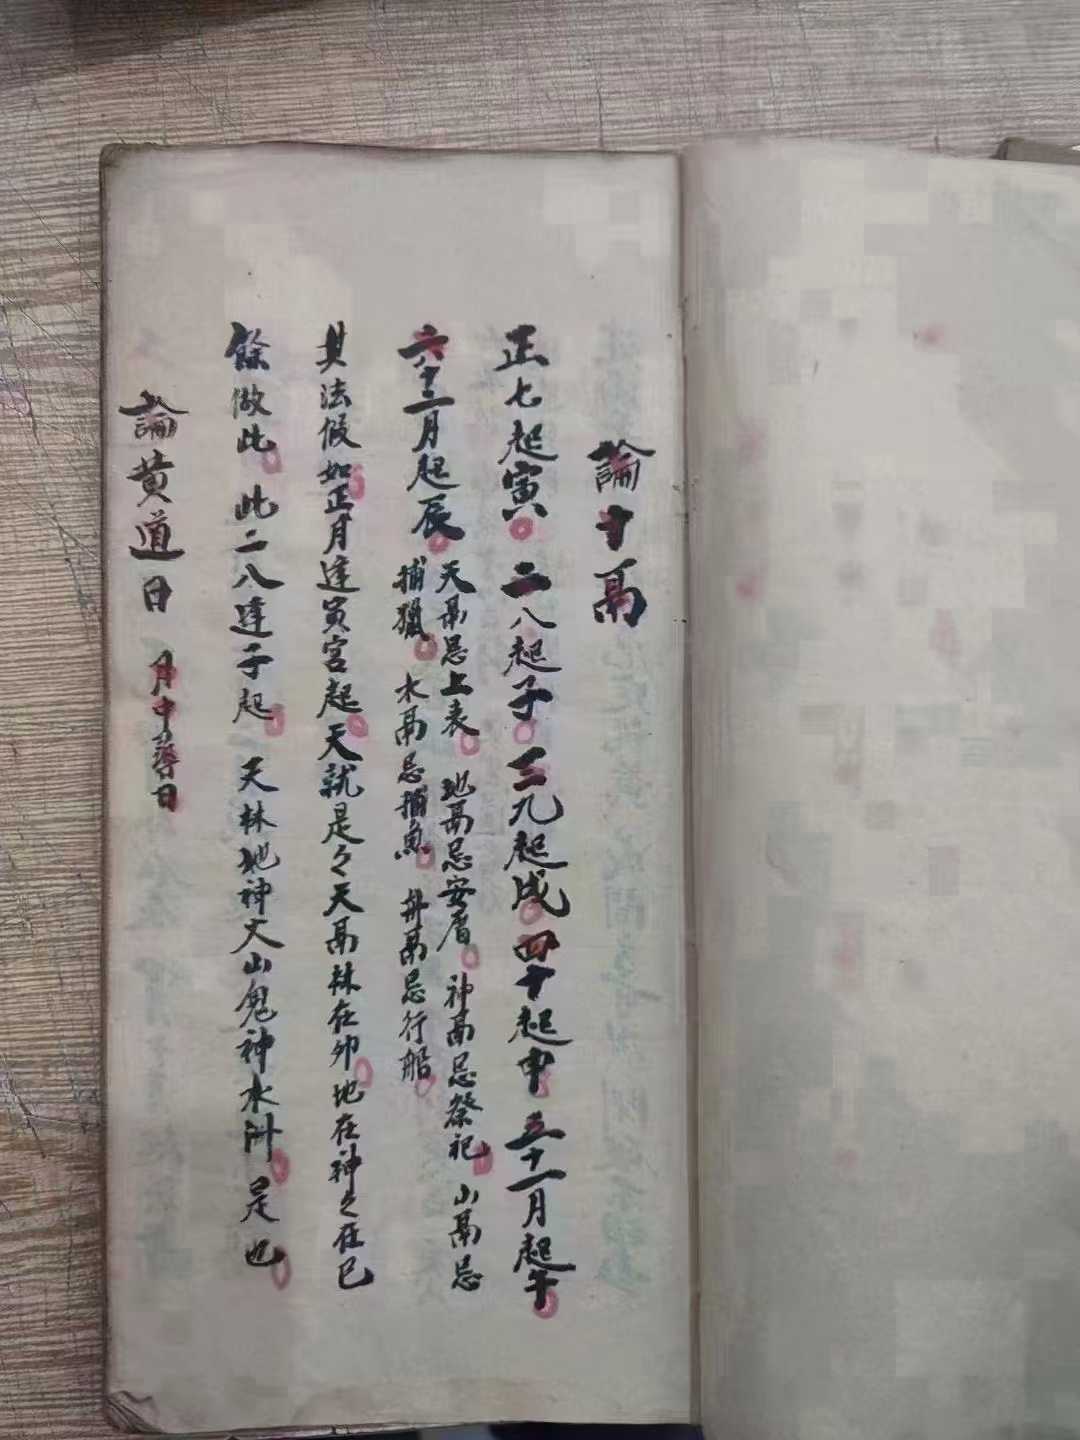 論十鬲
正七起寅 二八起子 三九起戍 四十起申 五十一月起午
六十二月起辰 天鬲忌上表 地鬲忌安厝 神鬲忌祭祀 山鬲忌
捕獵 水鬲忌捕魚 舟鬲忌行船
其法假如正月逢寅宮起天就是々天鬲林在卯地在神々在巳
餘做此 此二八逢子起 天林地神文山鬼神水州 是也
論黄道日 月中尋日